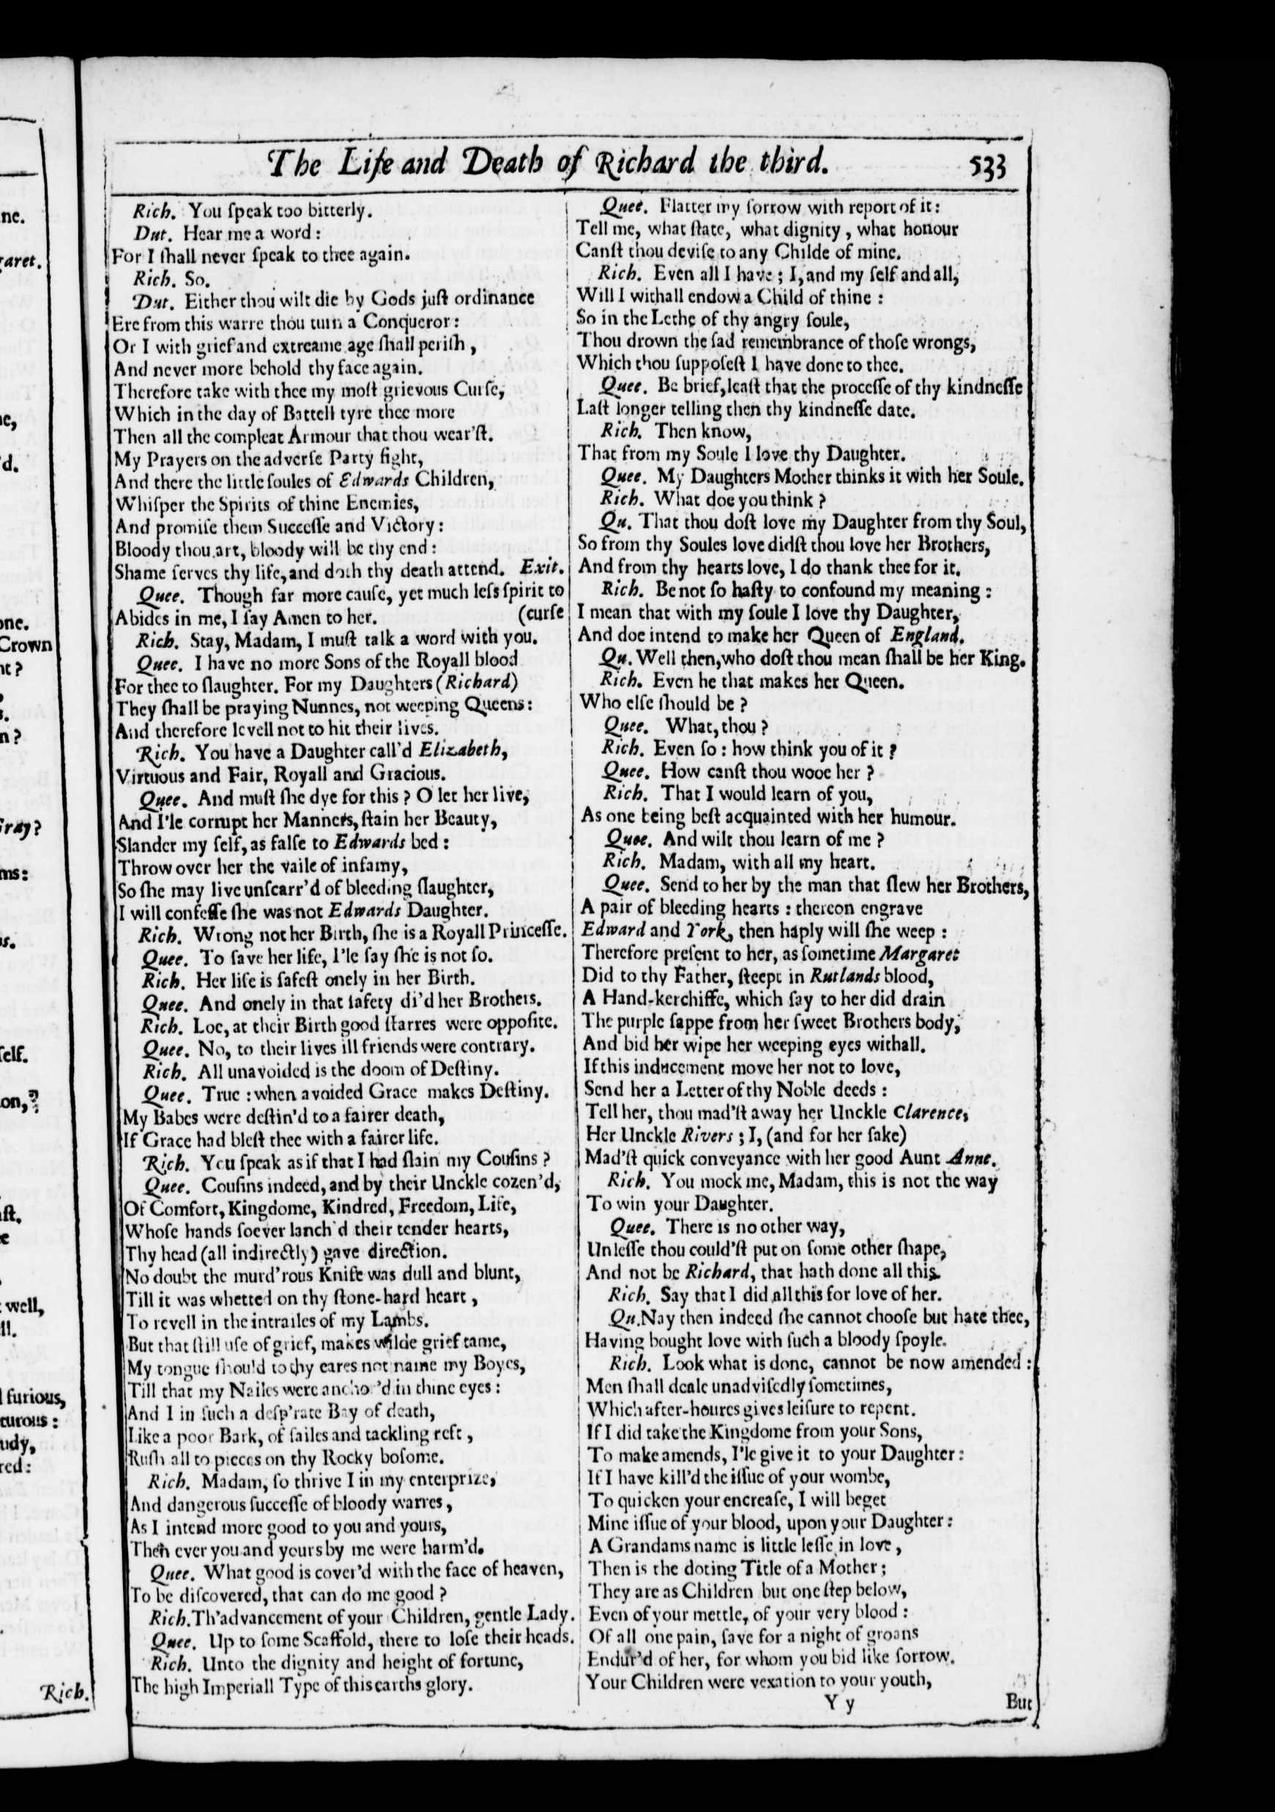 ne.
garet.
ne,
'd.
one.
Crown
nt?
n?
Gray?
ms:
s.
self.
on,?
st.
e
well,
ll.
furious,
turous:
udy,
red:
Rich.
The Life and Death of Richard the third. 533
Rich. You ſpeak too bitterly.
Dut. Hear me a word:
For I ſhall never ſpeak to thee again.
Rich. So.
Dut. Either thou wilt die by Gods juſt ordinance
Ere from this warre thou turn a Conqueror:
Or I with grief and extreame age ſhall periſh,
And never more behold thy face again.
Therefore take with thee my moſt grievous Curſe,
Which in the day of Battell tyre thee more
Then all the compleat Armour that thou wear'ſt.
My Prayers on the adverſe Party fight,
And there the little ſoules of Edwards Children,
Whiſper the Spirits of thine Enemies,
And promiſe them Succeſſe and Victory:
Bloody thou art, bloody will be thy end:
Shame ſerves thy life, and doth thy death attend. Exit.
Quee. Though far more cauſe, yet much leſs ſpirit to
Abides in me, I ſay Amen to her. (curſe
Rich. Stay, Madam, I muſt talk a word with you.
Quee. I have no more Sons of the Royall blood
For thee to ſlaughter. For my Daughters (Richard)
They ſhall be praying Nunnes, not weeping Queens:
And therefore levell not to hit their lives.
Rich. You have a Daughter call'd Elizabeth,
Virtuous and Fair, Royall and Gracious.
Quee. And muſt ſhe dye for this? O let her live,
And I'le corrupt her Manners, ſtain her Beauty,
Slander my ſelf, as falſe to Edwards bed:
Throw over her the vaile of infamy,
So ſhe may live unſcarr'd of bleeding ſlaughter,
I will confeſſe ſhe was not Edwards Daughter.
Rich. Wrong not her Birth, ſhe is a Royall Princeſſe.
Quee. To ſave her life, I'le ſay ſhe is not ſo.
Rich. Her life is ſafeſt onely in her Birth.
Quee. And onely in that ſafety di'd her Brothers.
Rich. Loe, at their Birth good ſtarres were oppoſite.
Quee. No, to their lives ill friends were contrary.
Rich. All unavoided is the doom of Deſtiny.
Quee. True: when avoided Grace makes Deſtiny.
My Babes were deſtin'd to a fairer death,
If Grace had bleſt thee with a fairer life.
Rich. You ſpeak as if that I had ſlain my Couſins?
Quee. Couſins indeed, and by their Unckle cozen'd,
Of Comfort, Kingdome, Kindred, Freedom, Life,
Whoſe hands ſoever lanch'd their tender hearts,
Thy head (all indirectly) gave direction.
No doubt the murd'rous Knife was dull and blunt,
Till it was whetted on thy ſtone-hard heart,
To revell in the intrailes of my Lambs.
But that ſtill uſe of grief, makes wilde grief tame,
My tongue ſhould to thy eares not name my Boyes,
Till that my Nailes were anchor'd in thine eyes:
And I in ſuch a deſp'rate Bay of death,
Like a poor Bark, of ſailes and tackling reft,
Ruſh all to pieces on thy Rocky boſome.
Rich. Madam, ſo thrive I in my enterprize,
And dangerous ſucceſſe of bloody warres,
As I intend more good to you and yours,
Then ever you and yours by me were harm'd.
Quee. What good is cover'd with the face of heaven,
To be diſcovered, that can do me good?
Rich. Th'advancement of your Children, gentle Lady.
Quee. Up to ſome Scaffold, there to loſe their heads.
Rich. Unto the dignity and height of fortune,
The high Imperiall Type of this earths glory.
Quee. Flatter my ſorrow with report of it:
Tell me, what ſtate, what dignity, what honour
Canſt thou deviſe to any Childe of mine.
Rich. Even all I have; I, and my ſelf and all,
Will I withall endow a Child of thine:
So in the Lethe of thy angry ſoule,
Thou drown the ſad remembrance of thoſe wrongs,
Which thou ſuppoſeſt I have done to thee.
Quee. Be brief, leaſt that the proceſſe of thy kindneſſe
Laſt longer telling then thy kindneſſe date.
Rich. Then know,
That from my Soule I love thy Daughter.
Quee. My Daughters Mother thinks it with her Soule.
Rich. What doe you think?
Qu. That thou doſt love my Daughter from thy Soul,
So from thy Soules love didſt thou love her Brothers,
And from thy hearts love, I do thank thee for it.
Rich. Be not ſo haſty to confound my meaning:
I mean that with my ſoule I love thy Daughter,
And doe intend to make her Queen of England.
Qu. Well then, who doſt thou mean ſhall be her King.
Rich. Even he that makes her Queen.
Who elſe ſhould be?
Quee. What, thou?
Rich. Even ſo: how think you of it?
Quee. How canſt thou wooe her?
Rich. That I would learn of you,
As one being beſt acquainted with her humour.
Quee. And wilt thou learn of me?
Rich. Madam, with all my heart.
Quee. Send to her by the man that ſlew her Brothers,
A pair of bleeding hearts: thereon engrave
Edward and York, then haply will ſhe weep:
Therefore preſent to her, as ſometime Margaret
Did to thy Father, ſteept in Rutlands blood,
A Hand-kerchiffe, which ſay to her did drain
The purple ſappe from her ſweet Brothers body,
And bid her wipe her weeping eyes withall.
If this inducement move her not to love,
Send her a Letter of thy Noble deeds:
Tell her, thou mad'ſt away her Unckle Clarence,
Her Unckle Rivers; I, (and for her ſake)
Mad'ſt quick conveyance with her good Aunt Anne.
Rich. You mock me, Madam, this is not the way
To win your Daughter.
Quee. There is no other way,
Unleſſe thou could'ſt put on ſome other ſhape,
And not be Richard, that hath done all this.
Rich. Say that I did all this for love of her.
Qu. Nay then indeed ſhe cannot chooſe but hate thee,
Having bought love with ſuch a bloody ſpoyle.
Rich. Look what is done, cannot be now amended:
Men ſhall deale unadviſedly ſometimes,
Which after-houres gives leiſure to repent.
If I did take the Kingdome from your Sons,
To make amends, I'le give it to your Daughter:
If I have kill'd the iſſue of your wombe,
To quicken your encreaſe, I will beget
Mine iſſue of your blood, upon your Daughter:
A Grandams name is little leſſe in love,
Then is the doting Title of a Mother;
They are as Children but one ſtep below,
Even of your mettle, of your very blood:
Of all one pain, ſave for a night of groans
Endur'd of her, for whom you bid like ſorrow.
Your Children were vexation to your youth,
Y y But